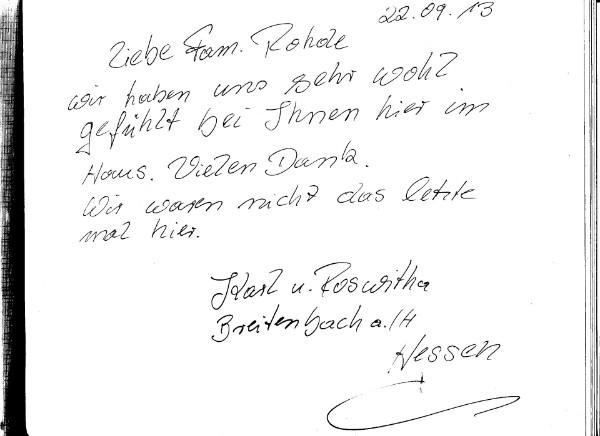 22.09.13
Liebe Fam. Rohde
wir haben uns sehr wohl
gefühlt bei Ihnen hier im
Haus. Vielen Dank.
Wir waren nicht das letzte
mal hier.
Karl u. Roswitha
Breitenbach a./H
Hessen